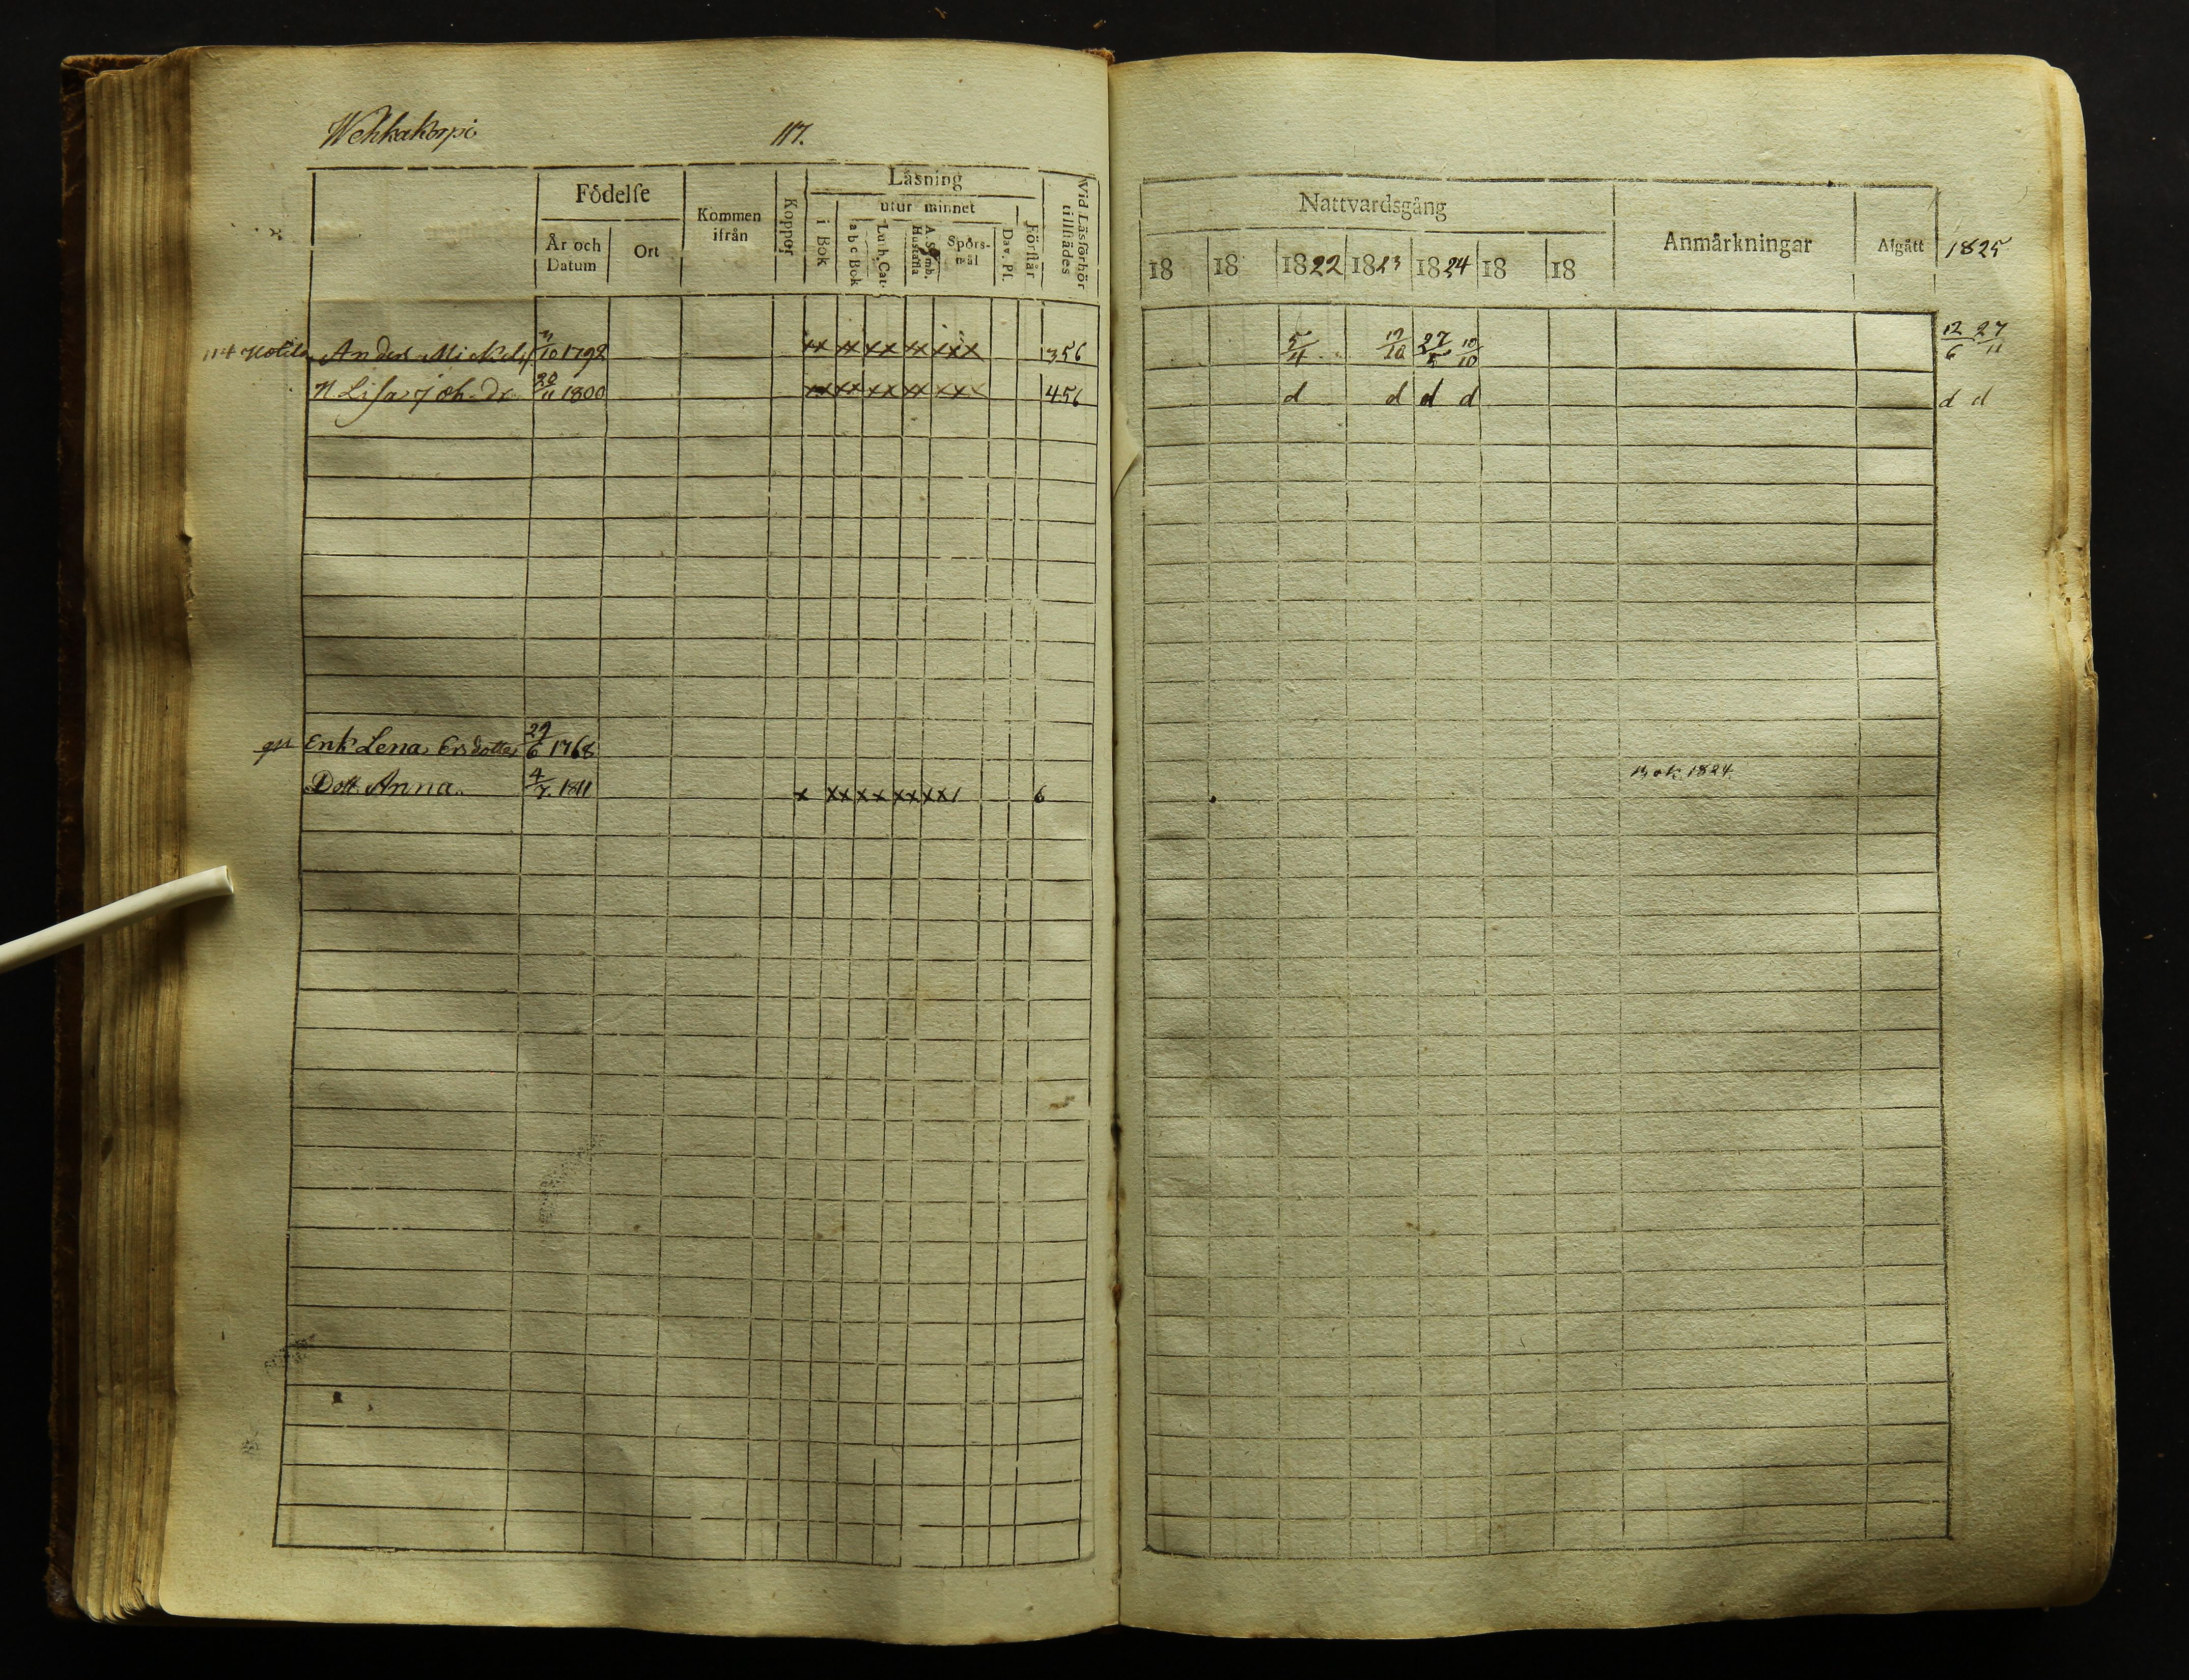 Wehkakorpi 117.
Födelse Kommen ifrån Koppor Läsning Vid Läsförhör tillstädes
År och Datum Ort i Bok utur minnet Förstår
a b c Bok Luth. Cat. A. Symb. Hustafla Spörsmål Dav. Ps.
Anders Mickels 10 1792 xx xx xx xx xxx 356
H Lisa Joh. dr 20/11 1800 xx xx xx xx xxx 456
Enk Lena Ersdotter 29/6 1768
Dott Anna. 4/7. 1811 x xx xx xx xx/ 6
Nattvardsgång Anmärkningar Afgått 1825
18 18 1822 1823 1824 18 18
5/4 12/10 27/5 10/10 12/6 27/11
d d d d d d
1824